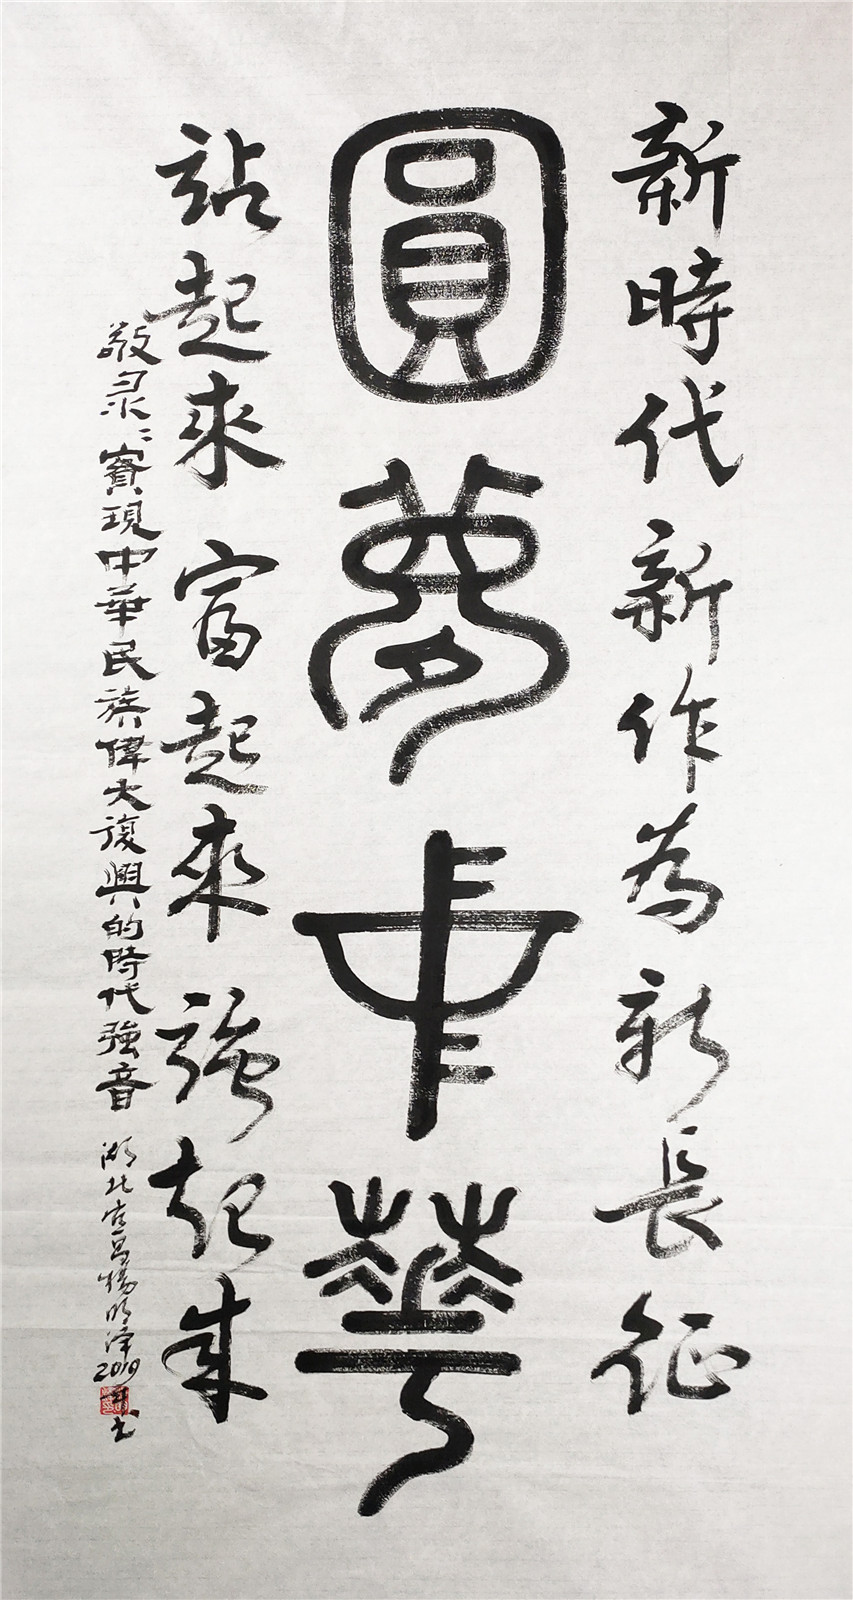 新時代新作為新長征
圓夢中華
站起來富起來強起來
敬录：實現中華民族偉大復興的時代強音
湖北宜昌楊明泽2019年书